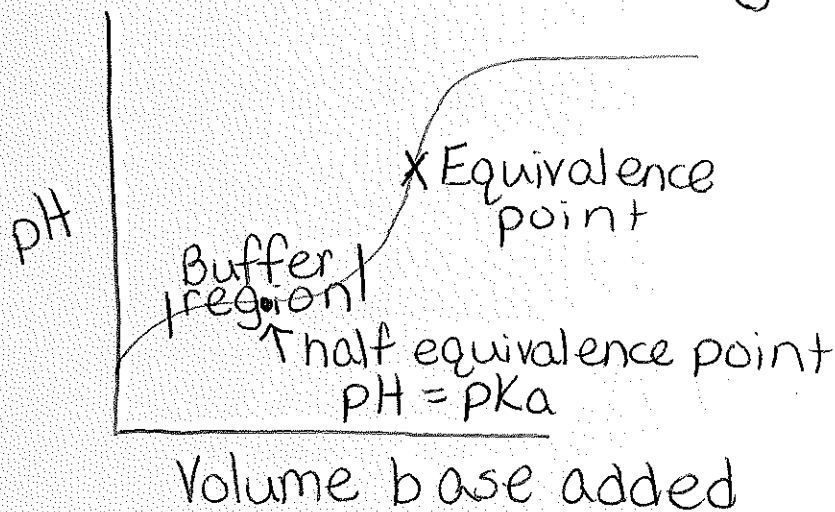 pH
X Equivalence
point
Buffer
region
↑ half equivalence point
pH = pKa
Volume base added